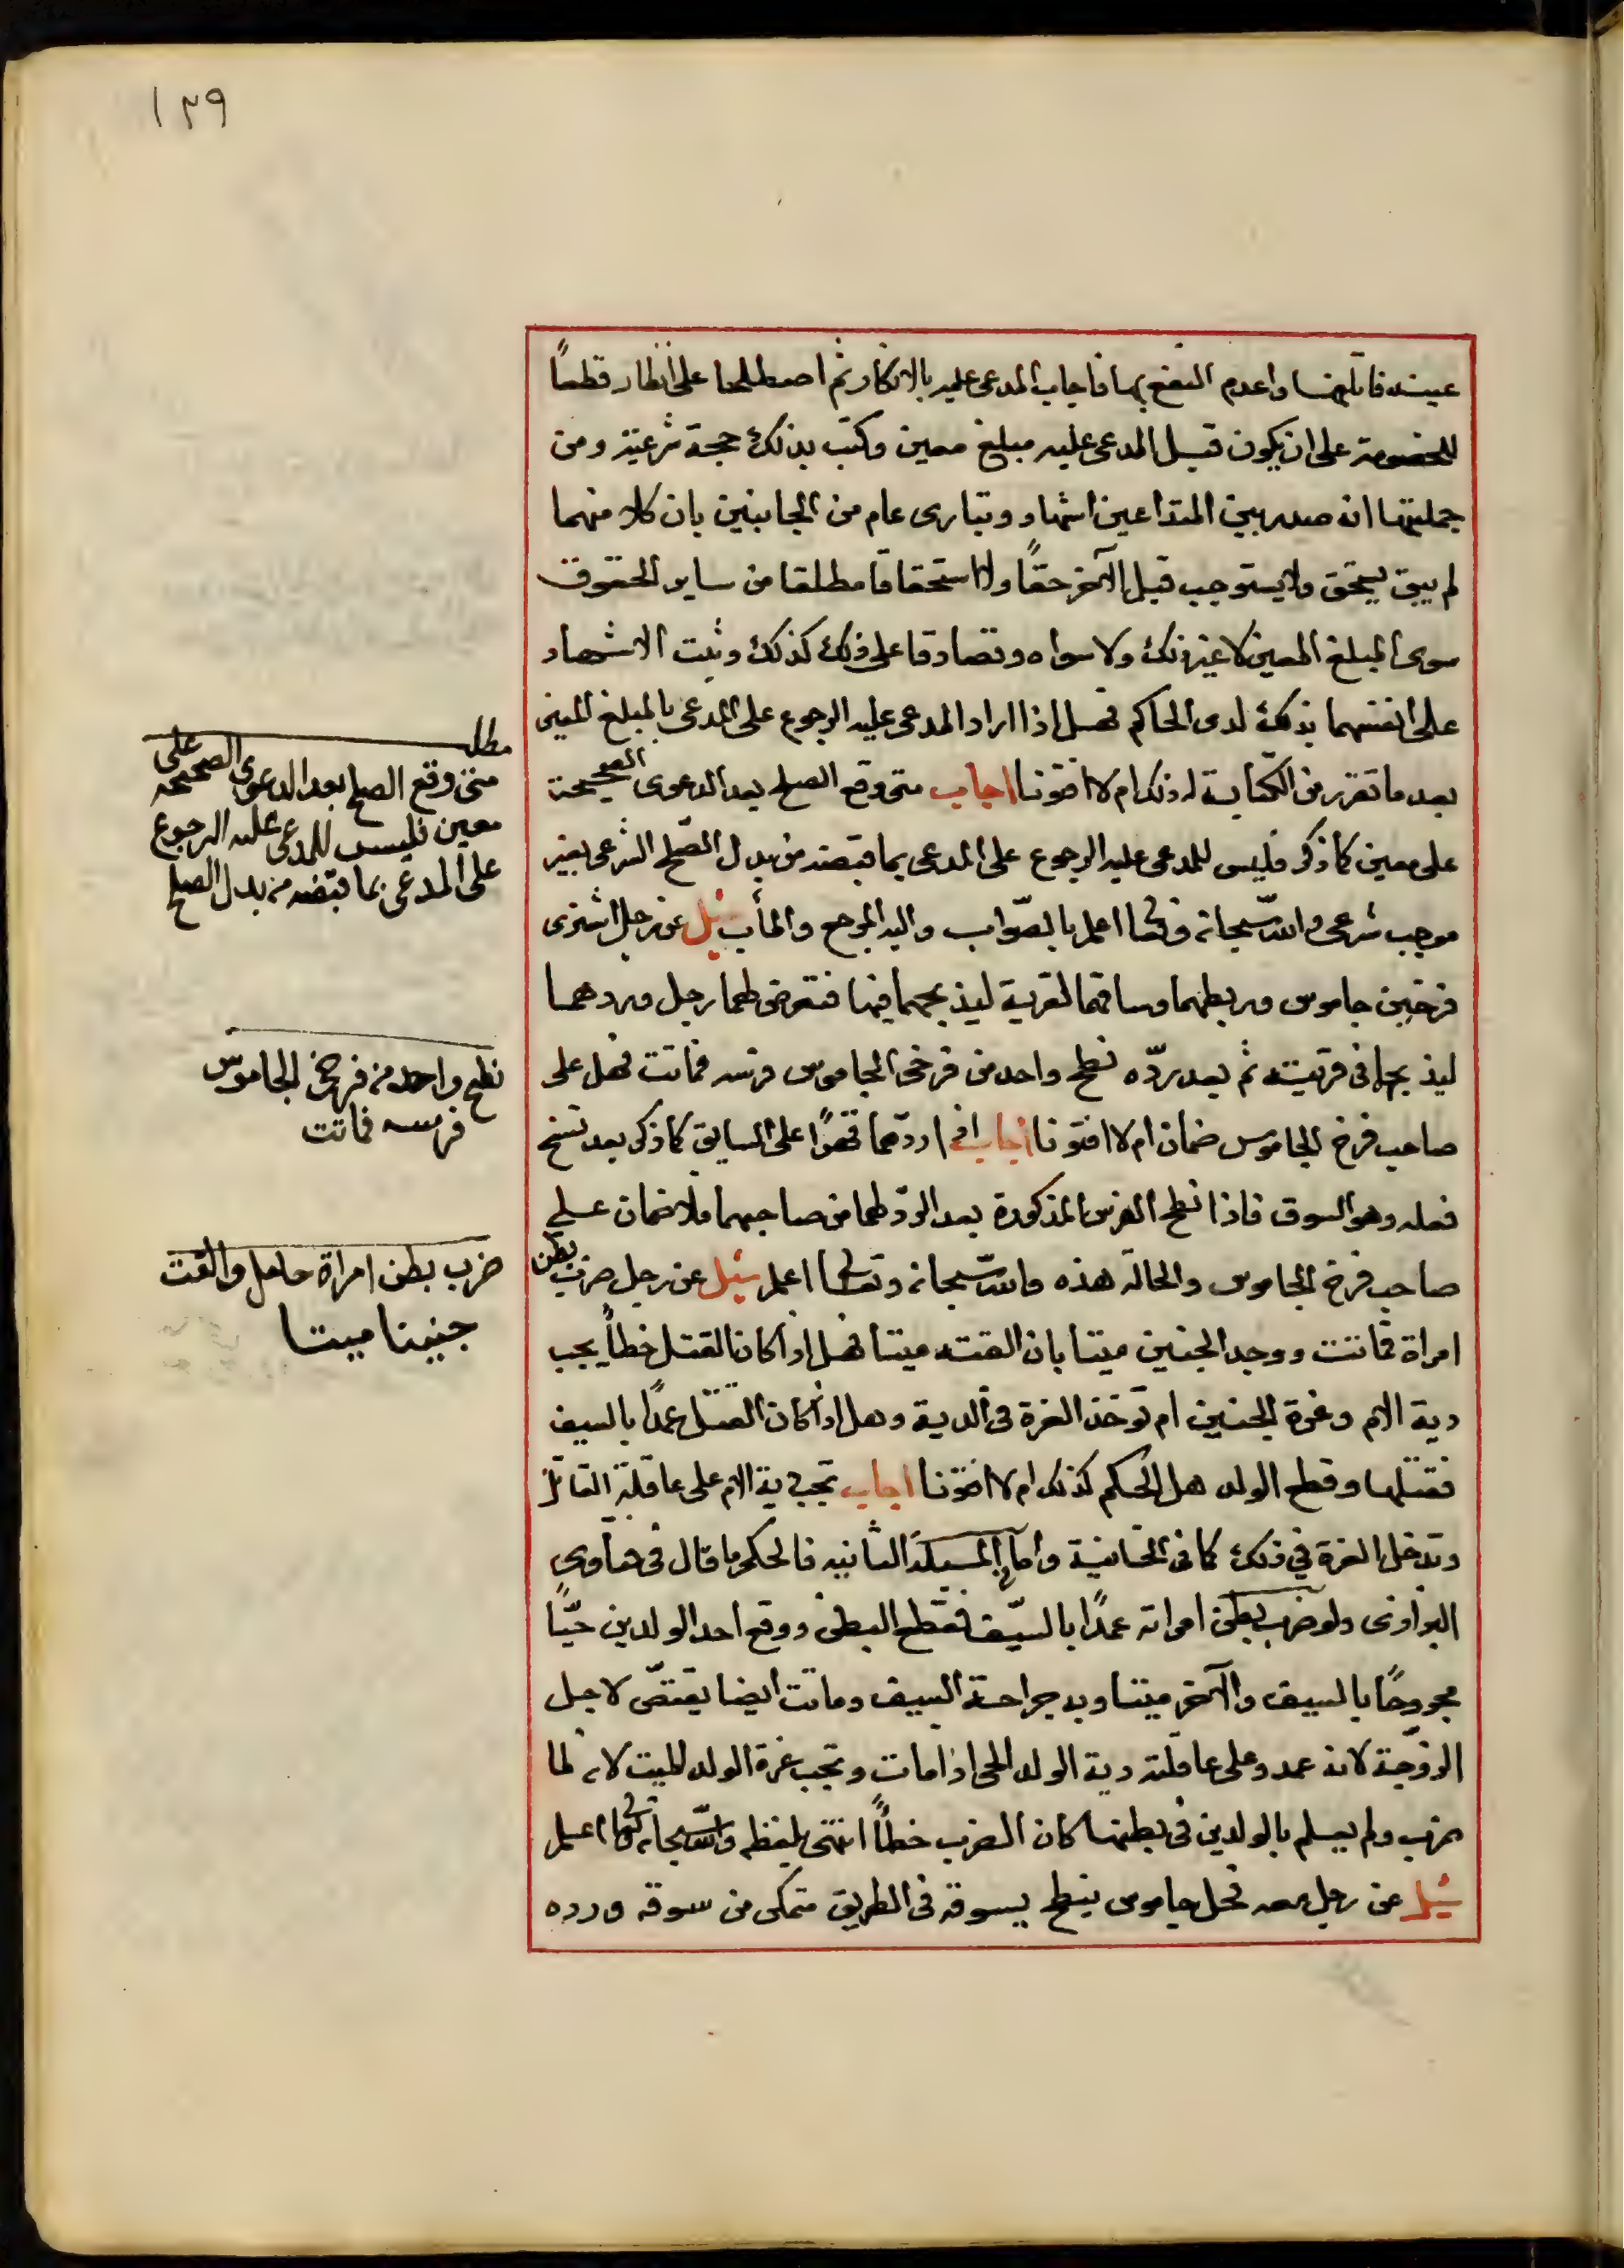 ١٢٩
عينه فاتلفها واعدم النفع بها فاجاب المدعى عليه بالانكار ثم اصطلحا على انظار قطعاً
للخصومة على ان يكون قبل المدعى عليه مبلغ معين وكتب بذلك حجة شرعية ومن
جملتها انه صدر بين المتداعين اشهاد وتبارى عام من الجانبين بان كلا منهما
لم يبق يستحق ولا يستوجب قبل الآخر حقاً ولا استحقاقا مطلقا من ساير الحقوق
سوى المبلغ المعين لا غير ذلك ولا سواه وتصادقا على ذلك كذلك وثبت الاشهاد
على انفسهما بذلك لدى الحاكم فهل اذا اراد المدعى عليه الرجوع على المدعى بالمبلغ المعين
بعد ما تقرر من الكتابة له ذلك ام لا افتونا اجاب متى وقع الصلح بعد الدعوى الصحيحة
على معين كما ذكر فليس للمدعى عليه الرجوع على المدعى بما قبضه من بدل الصلح الشرعى بغير
موجب شرعى والله سبحانه وتعالى اعلم بالصواب واليه المرجع والمأب سئل عن رجل اشترى
فرخين جاموس وربطهما وساقهما لقرية ليذبحهما فيها فتعرض لهما رجل وردهما
ليذبحا فى قريته ثم بعد ردّه نطح واحد من فرخى الجاموس فرسه فماتت فهل على
صاحب فرخ الجاموس ضمان ام لا افتونا اجاب اذا ردّهما قهرًا على السايق كما ذكر بعد نسخ
فعله وهو السوق فاذا نطح الفرس المذكورة بعد الردّ لهما من صاحبهما فلا ضمان على
صاحب فرخ الجاموس والحالة هذه والله سبحانه وتعالى اعلم سئل عن رجل ضرب بطن
امراة فماتت ووجد الجنين ميتا بان القته ميتا فهل اذا كان القتل خطأً يجب
دية الام وغرة الجنين ام تؤخذ الغرة فى الدية وهل اذا كان القتل عمدًا بالسيف
فقتلها وقطع الولد هل الحكم كذلك ام لا افتونا اجاب تجب دية الام على عاقلة القاتل
وتدخل الغرة في ذلك كما فى الخانية واما المسئلة الثانيه فالحكم ما قال فى فتاوى
البزازى ولو ضرب بطن امراته عمدًا بالسيف فقطع البطن ووقع احد الولدين حيّاً
مجروحًا بالسيف والآخر ميتا وبه جراحة السيف وماتت ايضا يقتصّ لاجل
الزوجة لانه عمد وعلى عاقلته دية الولد الحى اذا مات وتجب غرة الولد الميت لانه لما
ضرب ولم يعلم بالولدين فى بطنها كان الضرب خطأً انتهى بلفظه والله سبحانه وتعالى اعلم
سئل عن رجل معه فحل جاموس ينطح يسوقه فى الطريق متمكى من سوقه ورده
مطلب
متى وقع الصلح بعد الدعوى الصحيحه على
معين فليس للمدعى عليه الرجوع
على المدعى بما قبضه من بدل الصلح
نطح واحد من فرخى الجاموس
فرسه فماتت
ضرب بطن امراة حامل والقت
جنينا ميتا